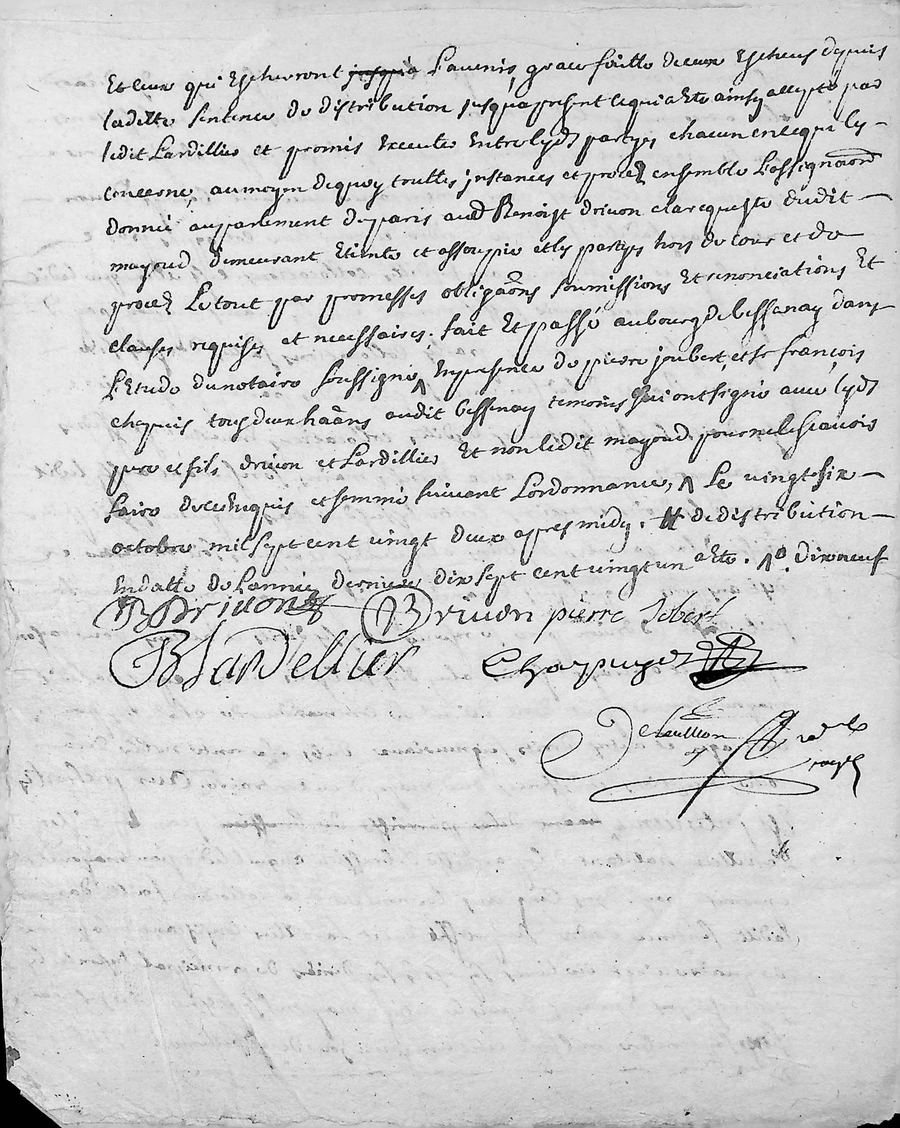 Et ceux qui escherront jusqua Lavenir, grace faitte de ceux Escheus depuis
ladette sentence de distribution jusqua present ce qui a ete ainsy accepté par
ledit Lardillier et promis Executer Entre lyds partyes chacun en ce que ly
concerne, au moyen de quoy touttes jnstances et proces ensemble L'assignaôn
donnée au parlement de paris aud Benoist drivon a la requeste dudit
mayoud demeurant Eteinte et assoupie et ly partyes hors de cour et de
proces Le tout par promesses obligaôns soumissions Et renonciations Et
clauses requises et necessaires; fait Et passé au bourg de bessenay dans
L'Etude du notaire soussigné ^ En presence de pierre joubert, et Sr françois
chapuis tous deux haâns audit bessenay temoins qui ont signé avec lyds
pere et fils drivon et Lardillier Et non ledit mayoud pour ne le scavoir
faire de ce enquis et sommé suivant Lordonnance, ^ Le vingt six
octobre mil sept cent vingt deux apres midy. # de distribution
En datte de Lannée derniere dix sept cent vingt un &te. ^ Dixneuf
B Drivon Brivon pierre Jobert
B Lardellier Chapuyes